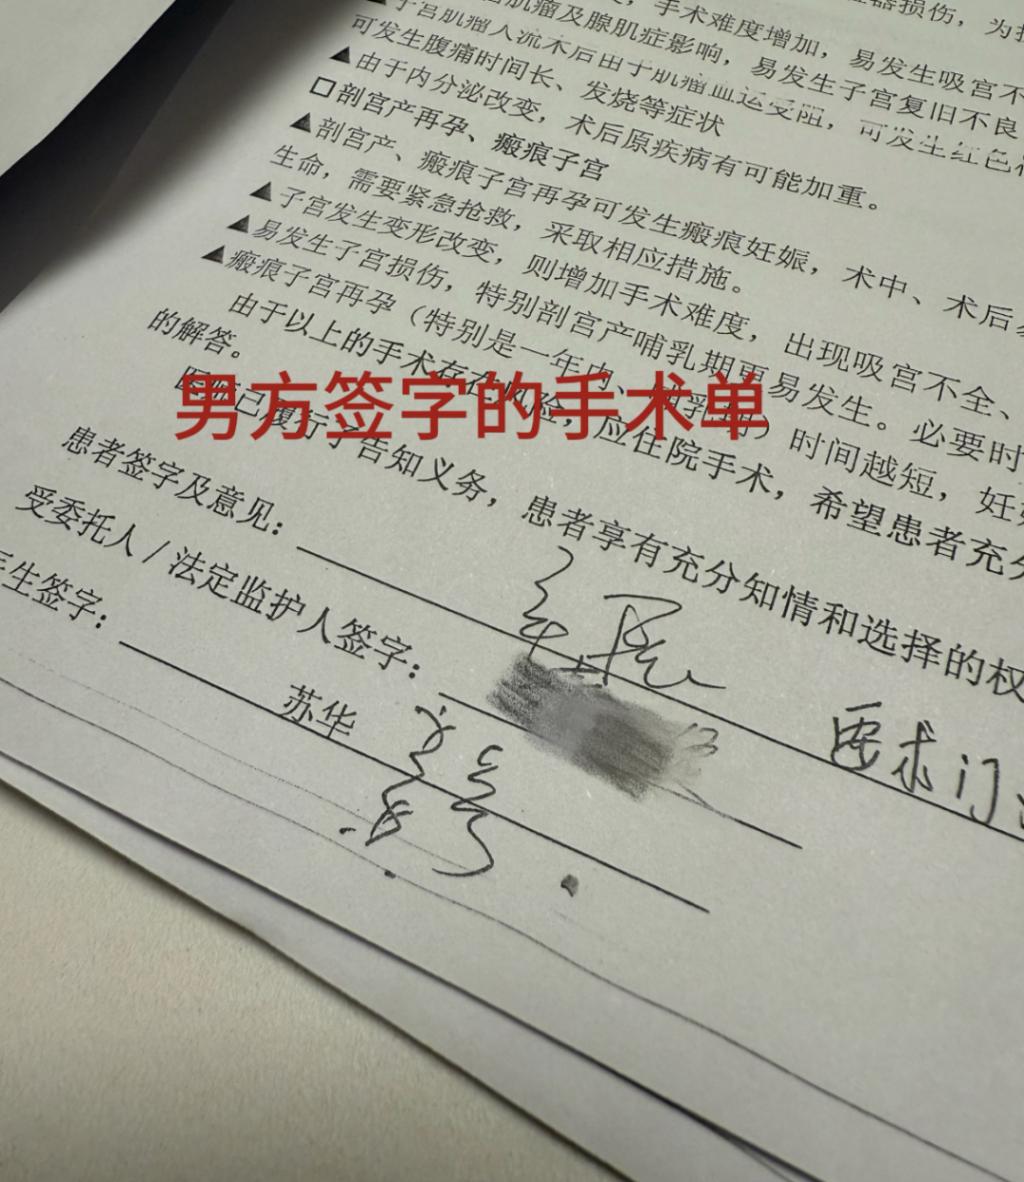 手术难度增加，易发生吸宫不
肌瘤及腺肌症影响，易发生子宫复旧不良
子宫肌瘤人流术后由于肌瘤血运受阻，可发生红色
可发生腹痛时间长、发烧等症状
▲由于内分泌改变，术后原疾病有可能加重。
□剖宫产再孕、瘢痕子宫
▲剖宫产、瘢痕子宫再孕可发生瘢痕妊娠，术中、术后
生命，需要紧急抢救，采取相应措施。
▲子宫发生变形改变，则增加手术难度，出现吸宫不全、
▲易发生子宫损伤，特别剖宫产哺乳期更易发生。必要时
▲瘢痕子宫再孕（特别是一年内、哺乳期）时间越短，妊
由于以上的手术存在风险，应住院手术，希望患者充分
的解答。
男方签字的手术单
医师已履行了告知义务，患者享有充分知情和选择的权
患者签字及意见：
要求门
受委托人/法定监护人签字：
生签字：
苏华